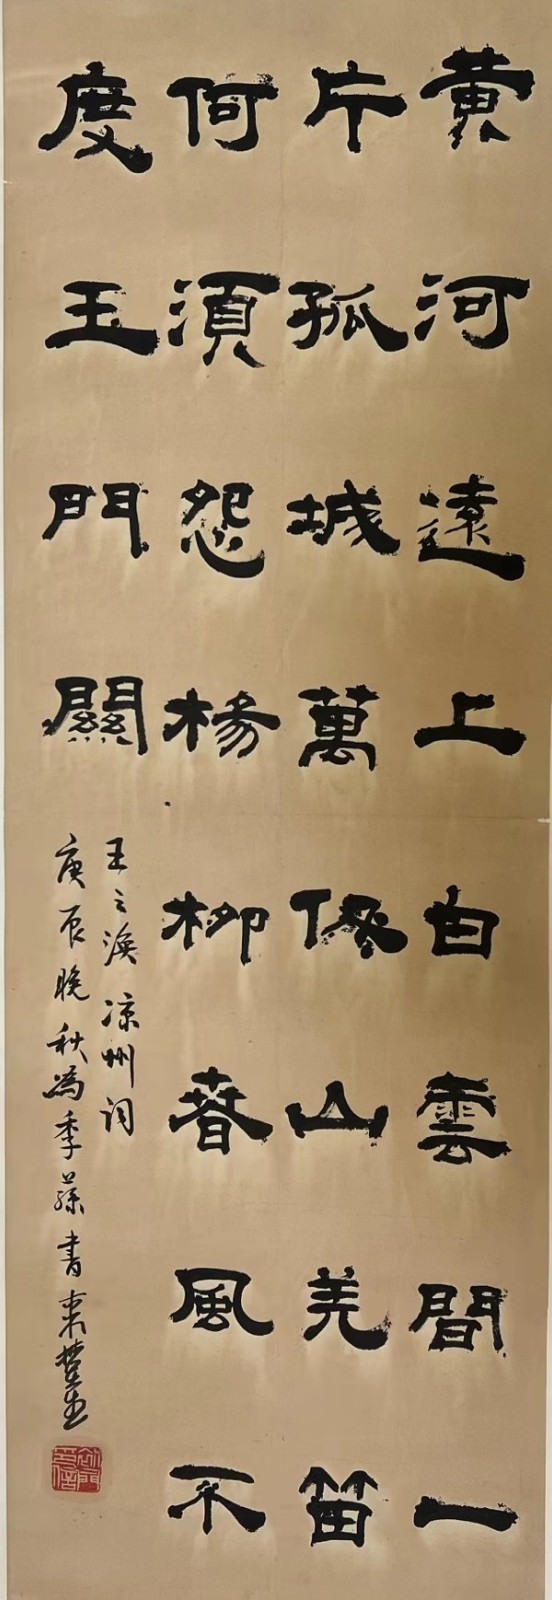 黄河遠上白雲間一
片孤城萬仞山羌笛
何須怨楊柳春風不
度玉門關
王之渙涼州词
庚辰晚秋為季蓀書